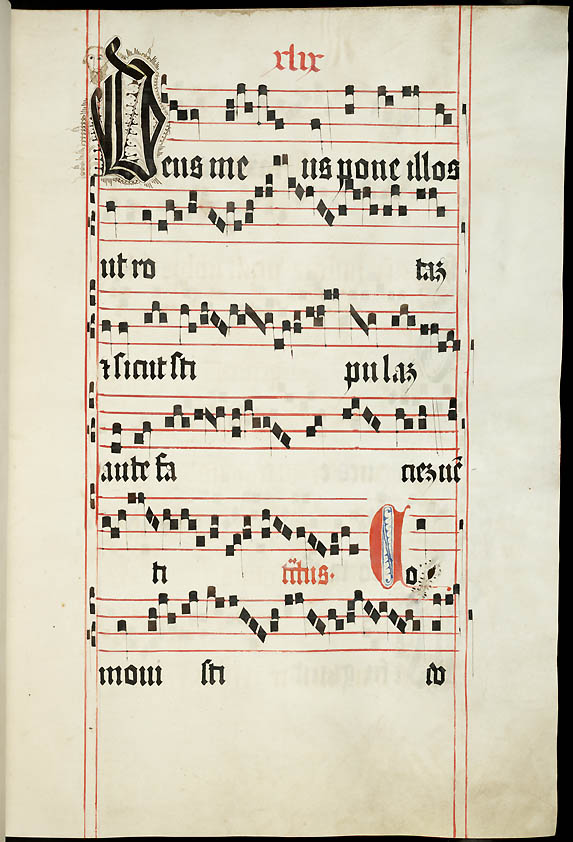 xlix
Deus me us pone illos
ut ro taz
⁊ sicut sti pulaz
ante fa ciez uē
ti Co
moui sti do